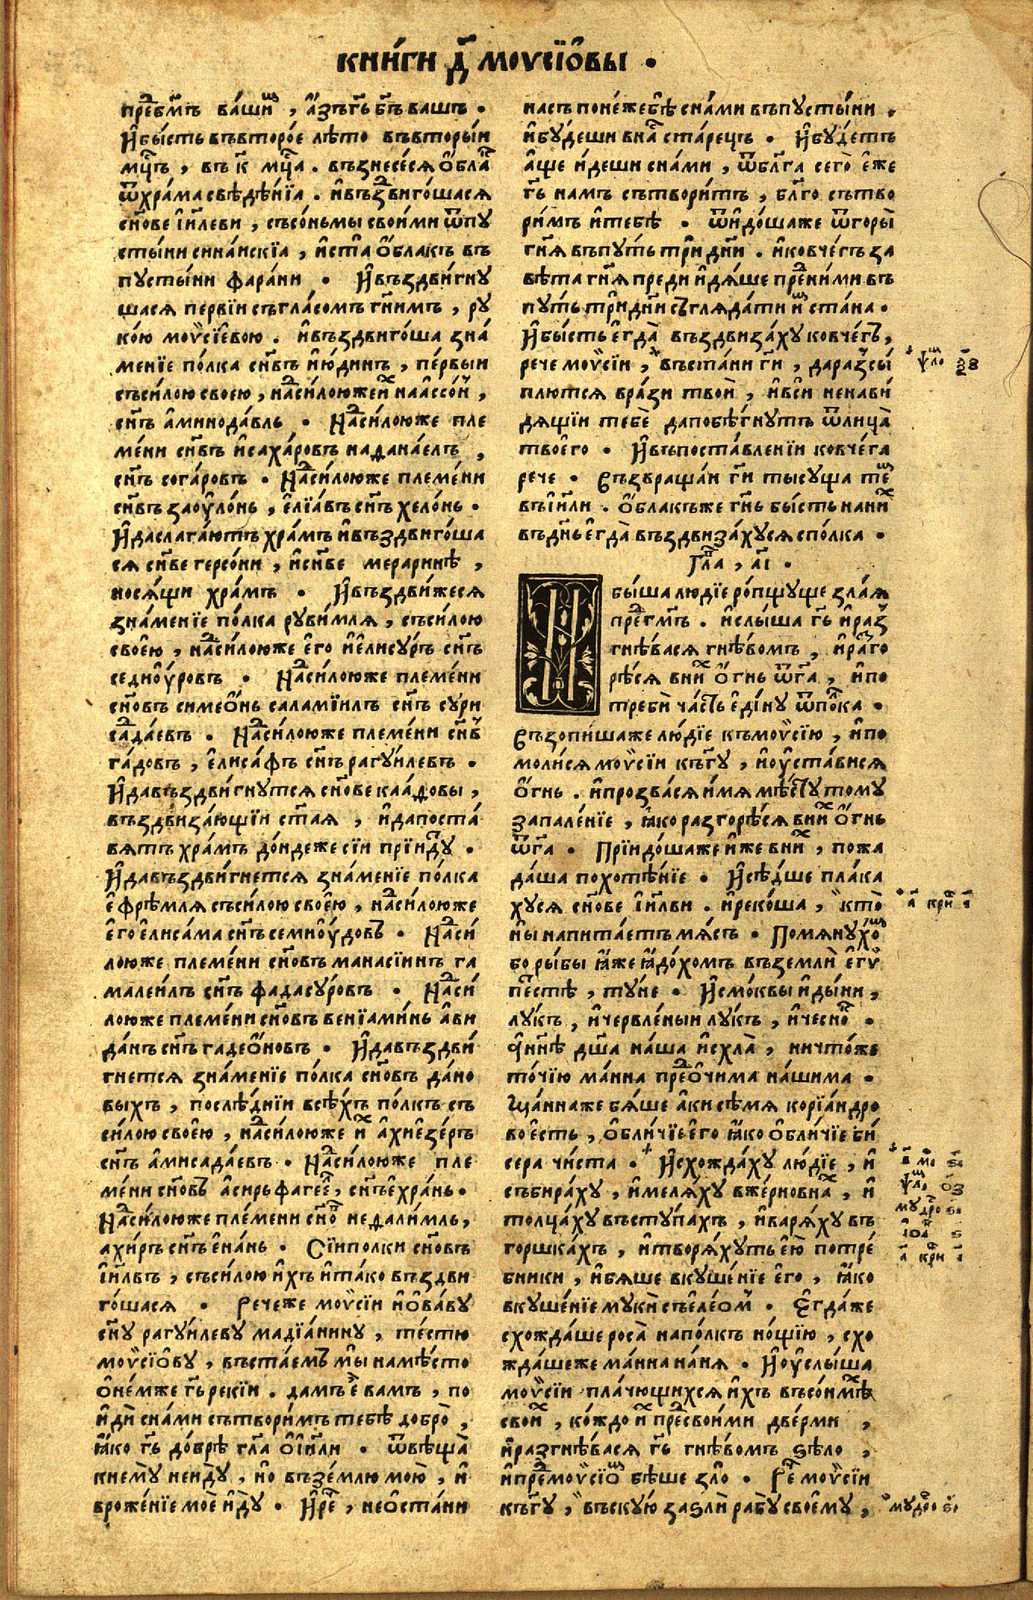 КНИ́ГИ Д҃ МОѴСЇО̑ВЫ ·
пре́дбг҃мъ ва́шимъ , а҆́зъ гь҃ бг҃ъ вашъ ·
И҆ бы́сть въ второ́е лѣ́то въ вторы́и
мц҃ъ , въ к҃ мц҃а . възнесе́ся о҆́блакъ
ѿ хра́ма свѣдѣ́нїа . и҆ въздви́гошася
сн҃ове і҆и҃леви , съсо́ньмы свои́ми ѿ пу
сты́ни сина́искїа , и҆ ста́ о҆́блакъ въ
пусты́ни фара́ни · И҆ въздви́гну
шася пе́рвїи съ гла́сомъ гн҃имъ , ру
ко́ю моѵсїе́вою . и҆ въздви́гоша зна́
менїе по́лка сн҃въ и҆ю́динъ , пе́рвыи
съ си́лою своею , над си́лоюже и҆́хъ наассо́нъ ,
сн҃ъ а҆минода́вль · Над си́лоюже пле
ме́ни сн҃въ и҆саха́ровъ наданаелъ ,
сн҃ъ сога́ровъ · Над си́лоюже племе́ни
сн҃въ заѹло́нь , е҆лїа́въ сн҃ъ хело́нь ·
И҆ да слага́ютъ хра́мъ и҆ въздви́гоша
ся сн҃ве герсо́ни , и҆ сн҃ве мерари́нѣ ,
нося́щи хра́мъ · И҆ въздви́жеся
зна́менїе по́лка руви́мля , съ си́лою
своею , над си́лоюже е҆го и҆ е҆лису́ръ сн҃ъ
седиоу́ровъ · Над си́лоюже племе́ни
сн҃овъ симео́нь саламїи́лъ сн҃ъ сури
сада́евъ · Над си́лоюже племе́ни сн҃въ
га́довъ , е҆лиса́фъ сн҃ъ рагуи́левъ ·
И҆ да въздви́гнутся сн҃ове каа́довы ,
въздвиза́ющїи ст҃ая , и҆ да поста́
вятъ хра́мъ до́ндеже сїи прїи́дꙋ ·
И҆ да въздви́гнется зна́менїе по́лка
е҆фре́мля съ си́лою своею , над си́лоюже
е҆го е҆лиса́ма сн҃ъ семиоу́довъ · Над си́
лоюже племе́ни сн҃овъ манасїинъ га
малеи́лъ сн҃ъ фадасу́ровъ · Над си́
лоюже племе́ни сн҃овъ венїами́нь а҆ви
да́нъ сн҃ъ гадео́новъ · И҆ да въздви́
гнется зна́менїе по́лка сн҃овъ да́но
выхъ , послѣ́днїи всѣ́хъ по́лкъ съ
си́лою своею , над си́лоюже и҆́хъ а҆хие́зеръ
сн҃ъ а҆мисада́евъ · Над си́лоюже пле
ме́ни сн҃овъ а҆си́рь фагее́лъ , сн҃ъ е҆хра́нь ·
Над си́лоюже племе́ни сн҃овъ недали́мль ,
ахи́ръ сн҃ъ е҆на́нь · Сїи полки сн҃овъ
і҆и҃лвъ , съ си́лою и҆́хъ и҆ та́ко въздви
го́шася · Рече́же моѵси́и и҆о҆ва́ву
сн҃у рагуи́леву мадїа́нину , те́стю
моѵсїо́ву , въста́емъ мы̀ на мѣ́сто
о҆не́мже гь҃ реки́и . дамъ є҆̀ вамъ , по
и҆ди́ сна́ми сътвори́мъ тебѣ добро̀ ,
ꙗ҆́ко гь҃ до́брѣ гл҃а о҆ і҆и҃ли · ѿвѣща̀
к нему̀ не и҆дꙋ , но въ зе́млю мою̀ , и҆
в роже́нїе мое и҆́дꙋ · И҆ ре́че , не о҆ста́ни
насъ поне́же бѣ̀ сна́ми въ пусты́ни ·
и҆ бу́деши в на́съ ста́рецъ · И҆ бу́детъ
а҆́ще и҆́деши сна́ми , ѿ бл҃га сего̀ е҆́же
гь҃ намъ сътвори́тъ , бл҃го сътво
ри́мъ и҆ тебѣ · ѿи҆до́шаже ѿ горы̀
гн҃я въ пу́ть три́ дн҃и . и҆ ковче́гъ за
вѣ́та гн҃я преди и҆дя́ше пред ни́ми въ
пу́ть три́ дн҃и съгляда́ти и҆́мъ ста́на ·
И҆ бы́сть е҆гда̀ въздвиза́ху ковче́гъ ,
рече моѵси́и , въста́ни гн҃и , да разсы́
плются врази твои̑ , и҆ вси́ ненави́
дящїи тебѐ да побѣ́гнутъ ѿ лица̀
твоего · И҆ въ поставле́нїи ковче́га
рече · Възвраща́и гн҃и тысуща тем
въ і҆и҃ли . О҆́блакъже гн҃ь бы́сть на ни́хъ
въ дн҃ь е҆гда̀ въздвиза́хуся с по́лка ·
Гл҃а , а҃і ·
И҆ бы́ша лю́дїе ро́пщуще зла́я
пред гм҃ъ . и҆ слы́ша гь҃ и҆ раз
гнѣ́вася гнѣ́вомъ , и҆ разго
рѣ́ся в ни́хъ о҆́гнь ѿ га҃ , и҆ по
треби ча́сть е҆ди́ну ѿ по́лка ·
Възопи́шаже лю́дїе къ моѵсїю , и҆ по
моли́ся моѵси́и къ гу҃ , и҆ ѹста́вися
о҆́гнь . и҆ прозва́ся и҆́мя мѣ́сту тому
запале́нїе , ꙗ҆́ко разгорѣ́ся в ни́хъ о҆́гнь
ѿ га҃ · Прїидо́шаже и҆́же в ни́хъ , пожа
да́ша похотѣ́нїе · И҆ сѣ́дше пла́ка
хуся сн҃ове і҆и҃лви . и҆ реко́ша , кто̀
ны напита́етъ мя́съ · Помяну́хомъ
бо ры́бы ꙗ҆́же ꙗ҆до́хомъ въ земли̑ е҆гѵ
петстѣ , ту́не · И҆ смо́квы и҆ ды́ни ,
лу́къ , и҆ червле́ныи лу́къ , и҆ чесно́къ ·
Нн҃ѣ дш҃а на́ша и҆схла̀ , ничто́же
то́чїю ма́нна пред о҆чи́ма на́шима ·
Ма́ннаже бя́ше а҆́ки сѣ́мя корїа́ндро
во е҆́сть , о҆бли́чїе е҆го ꙗ҆́ко о҆бли́чїе би́
сера чи́ста · И҆схожда́ху лю́дїе , и҆
събира́ху , и҆ меля́ху в же́рновнахъ , и҆
толца́ху въ ступа́хъ , и҆ варя́ху въ
горшка́хъ , и҆ творя́хуть е҆ю̀ потре́
бники , и҆ бя́ше вкуше́нїе е҆го , ꙗ҆́ко
вкуше́нїе муки̑ съ е҆ле́омъ · Е҆гда́же
схожда́ше роса̀ на по́лкъ но́щїю , схо
жда́шеже ма́нна на́ня · И҆ ѹслы́ша
моѵси́и пла́чющихся и҆́хъ въ со́нмѣхъ
свои́хъ , ко́ждо и҆́хъ пред свои́ми две́рми ,
и҆ разгнѣ́вася гь҃ гнѣ́вомъ ѕѣло ,
и҆ пред моѵсїомъ бѣ́ше зло̀ · Рече моѵси́и
къ гу҃ , въску́ю за ѕли̑ рабу̀ своему ,
ѱа́ло ѯ҃з
а҃ кри҃ і҃
в҃ мо ѕ҃і
ѱа́ло о҃з
му́дро ѕ҃і
і҆оа́ ѕ҃
а҃ кри і҃
му́дро ѕ҃і